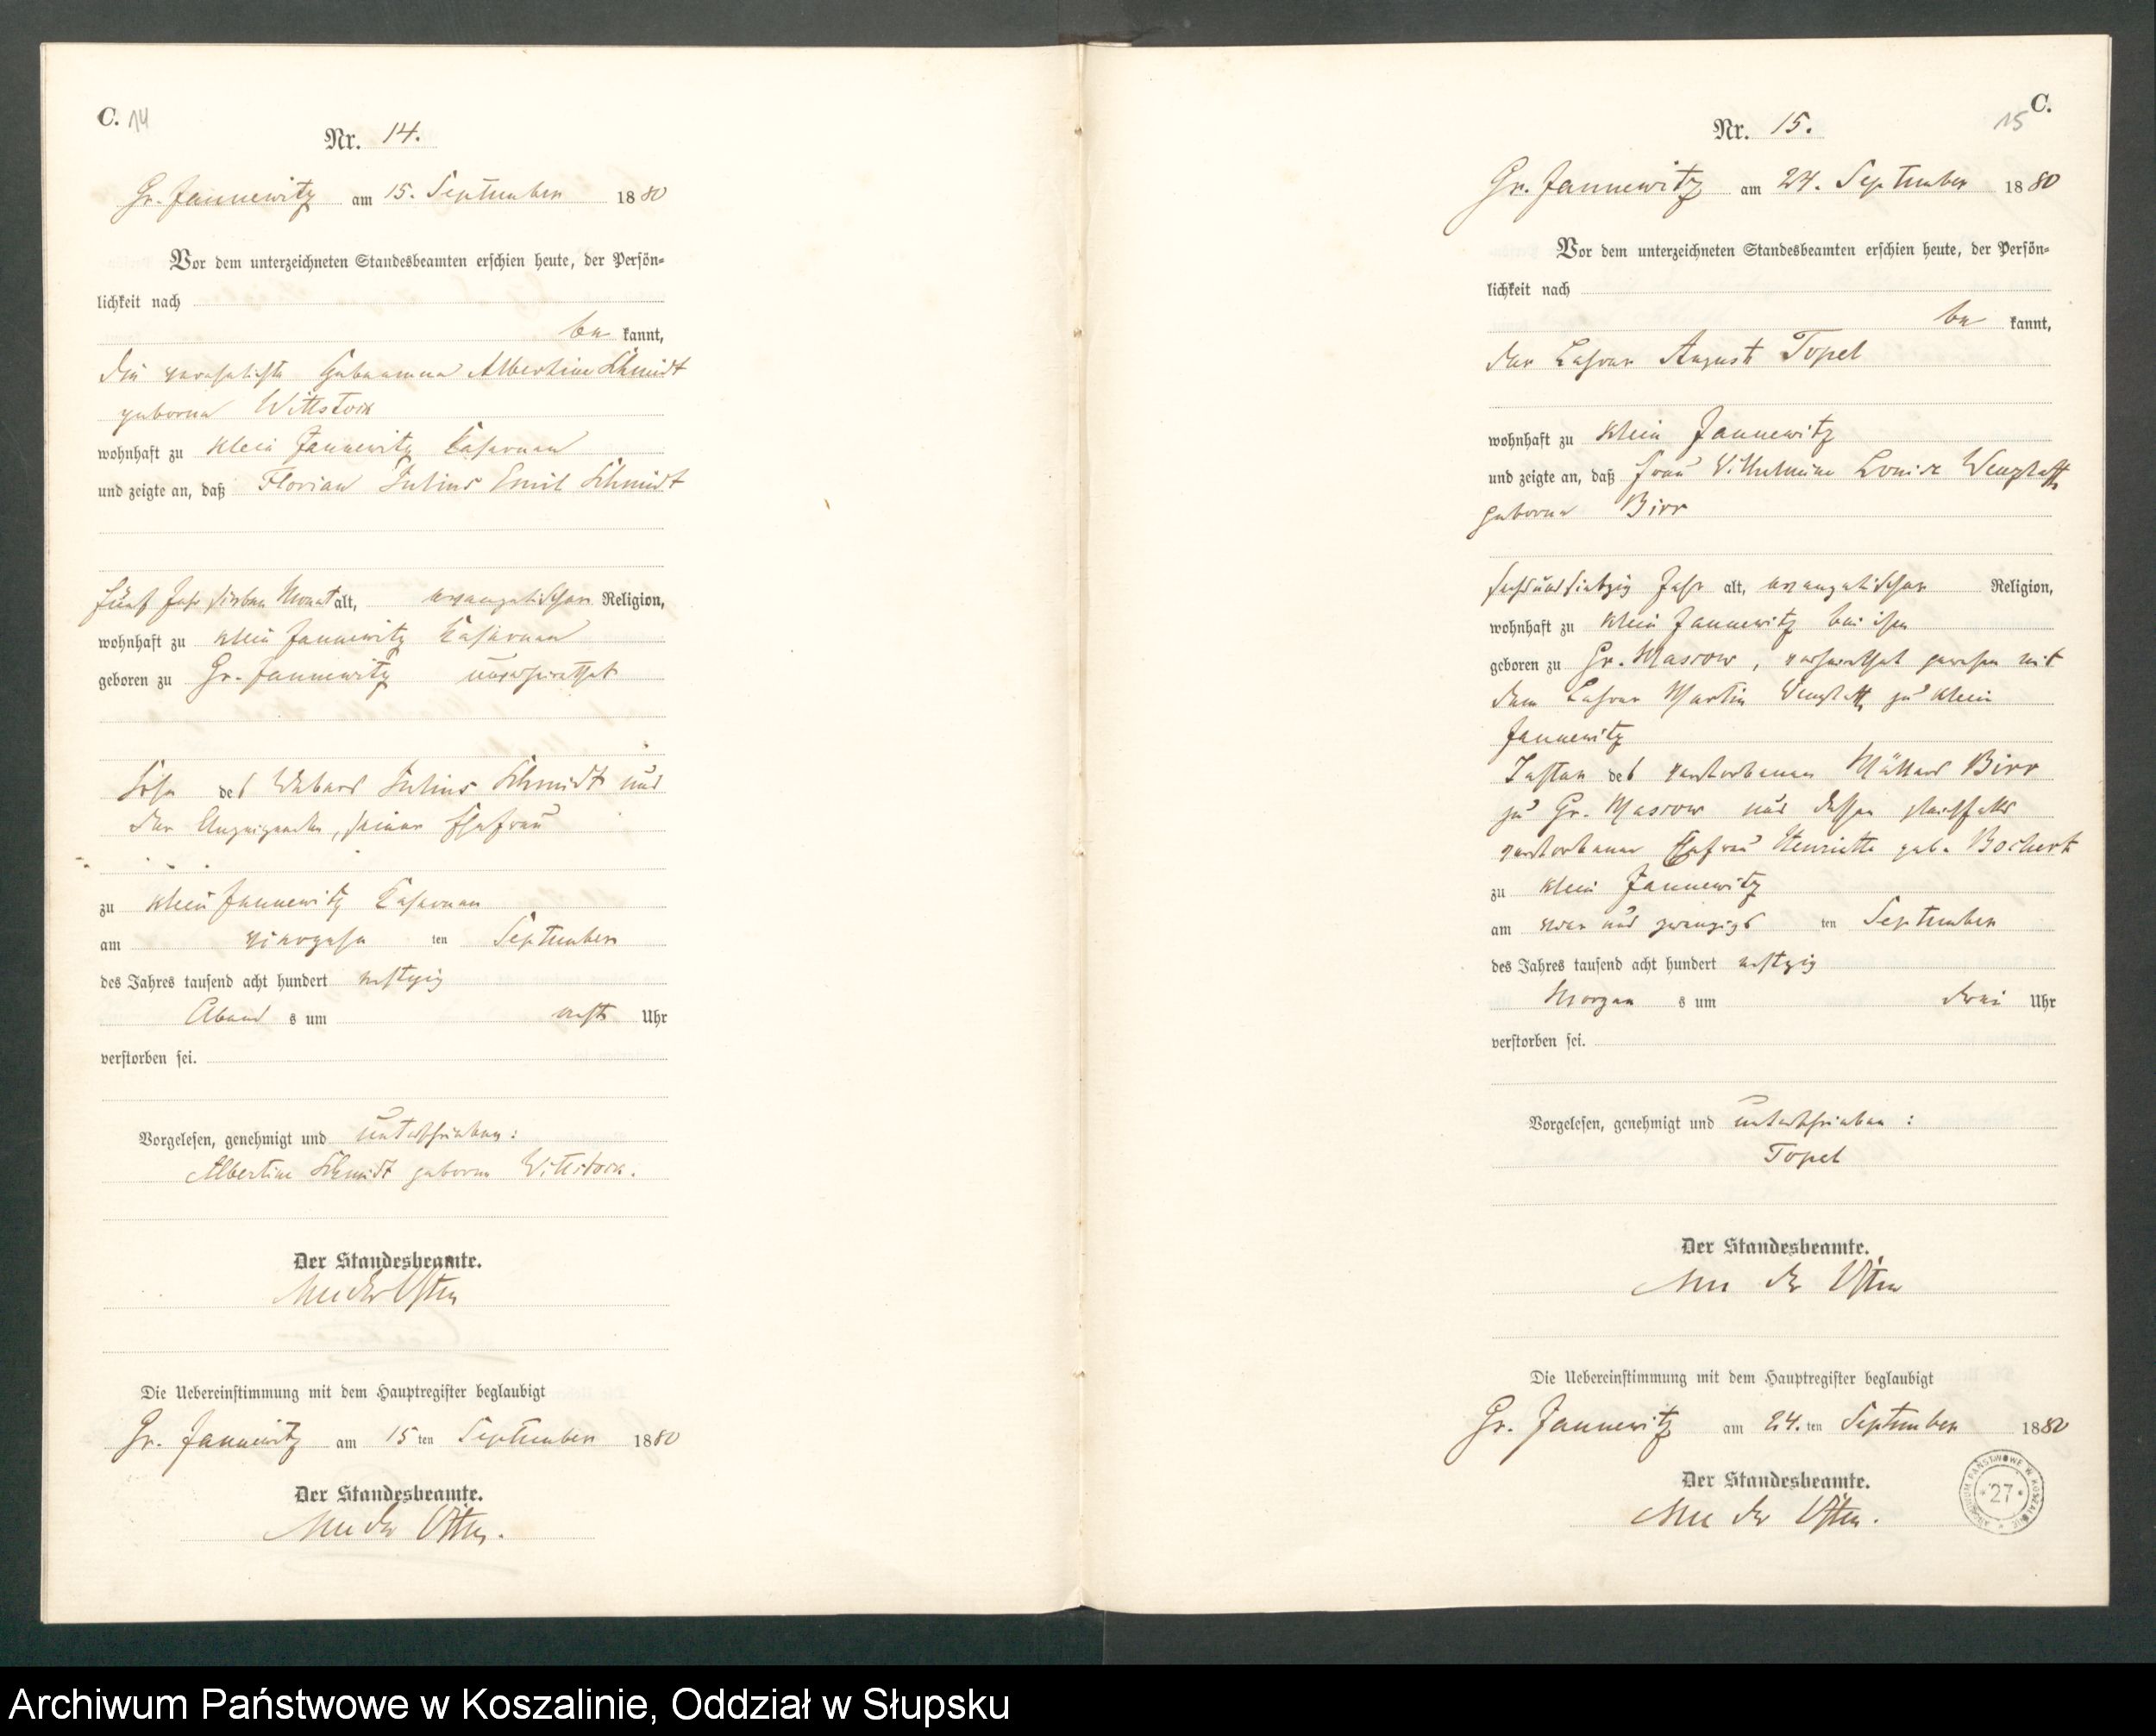 C. 14
Nr. 14.
Gr. Jannewitz am 15. September 1880
Vor dem unterzeichneten Standesbeamten erschien heute, der Persön-
lichkeit nach
be kannt,
die verehelichte Hebeamme Albertine Schmidt
geborne Wittstock
wohnhaft zu Klein Jannewitz
und zeigte an, daß Florian Julius Emil Schmidt
fünf Jahr sieben Monat alt, evangelischer Religion,
wohnhaft zu Klein Jannewitz
geboren zu Gr. Jannewitz unverheirathet
Sohn des Webers Julius Schmidt und
der Anzeigenden, seiner Ehefrau
zu Klein Jannewitz
am vierzehn ten September
des Jahres tausend acht hundert achtzig
Abend s um acht Uhr
verstorben sei.
Vorgelesen, genehmigt und unterschrieben:
Albertine Schmidt geborne Wittstock.
Der Standesbeamte.
Die Uebereinstimmung mit dem Hauptregister beglaubigt
Gr. Jannewitz am 15 ten September 1880
Der Standesbeamte.
C.
15
Nr. 15.
Gr. Jannewitz am 24. September 1880
Vor dem unterzeichneten Standesbeamten erschien heute, der Persön-
lichkeit nach
be kannt,
der Lehrer August Topel
wohnhaft zu Klein Jannewitz
und zeigte an, daß Frau Wilhelmine Louise
geborne Birr
sechsundsiebzig Jahr alt, evangelischer Religion,
wohnhaft zu Klein Jannewitz bei ihm
geboren zu Gr. Massow, verheirathet gewesen mit
dem Lehrer Martin zu Klein
Jannewitz
Tochter des verstorbenen Müllers Birr
zu Gr. Massow und dessen gleichfalls
verstorbener Ehefrau Henriette geb. Bochert
zu Klein Jannewitz
am vier und zwanzigs ten September
des Jahres tausend acht hundert achtzig
Morgen s um drei Uhr
verstorben sei.
Vorgelesen, genehmigt und unterschrieben:
Topel
Der Standesbeamte.
Die Uebereinstimmung mit dem Hauptregister beglaubigt
Gr. Jannewitz am 24. ten September 1880
Der Standesbeamte.
ARCHIWUM PAŃSTWOWE W KOSZALINIE
* 27 *
Archiwum Państwowe w Koszalinie, Oddział w Słupsku